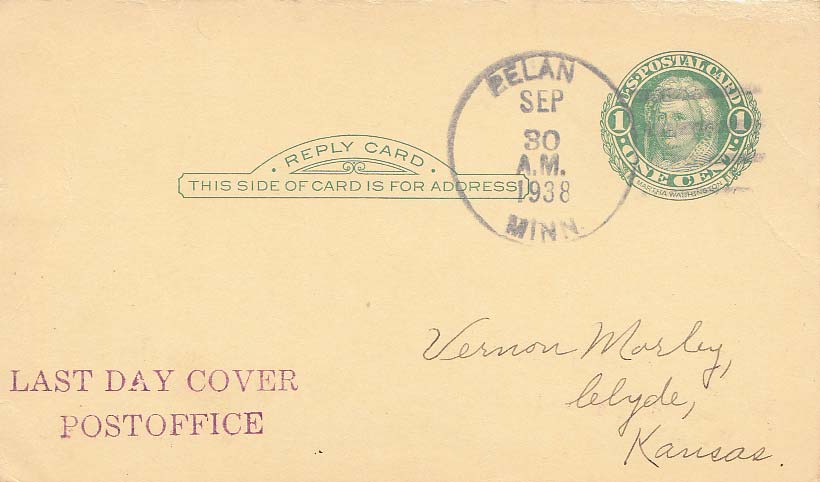 PELAN
SEP
30
A.M.
1938
MINN.
U.S. POSTAL CARD
1 1
ONE CENT
MARTHA WASHINGTON
· REPLY CARD ·
THIS SIDE OF CARD IS FOR ADDRESS
Vernon Morley,
Clyde,
Kansas.
LAST DAY COVER
POSTOFFICE